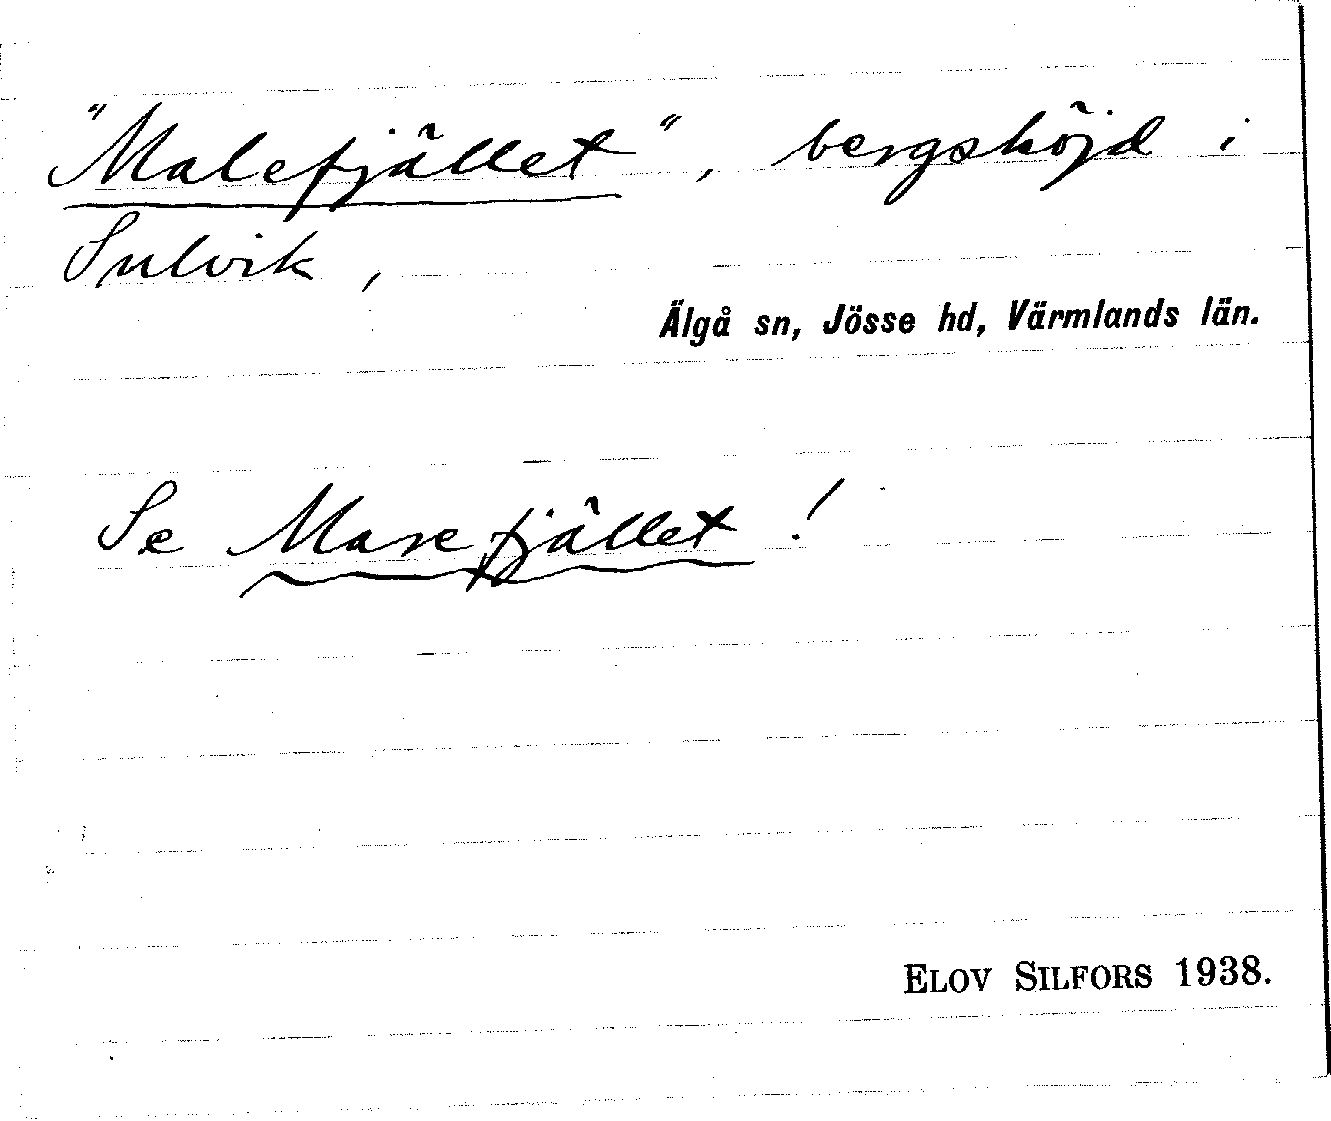 "Malefjället", bergshöjd i
Sulvik,
Älgå sn, Jösse hd, Värmlands län.
Se Marefjället!
ELOV SILFORS 1938.